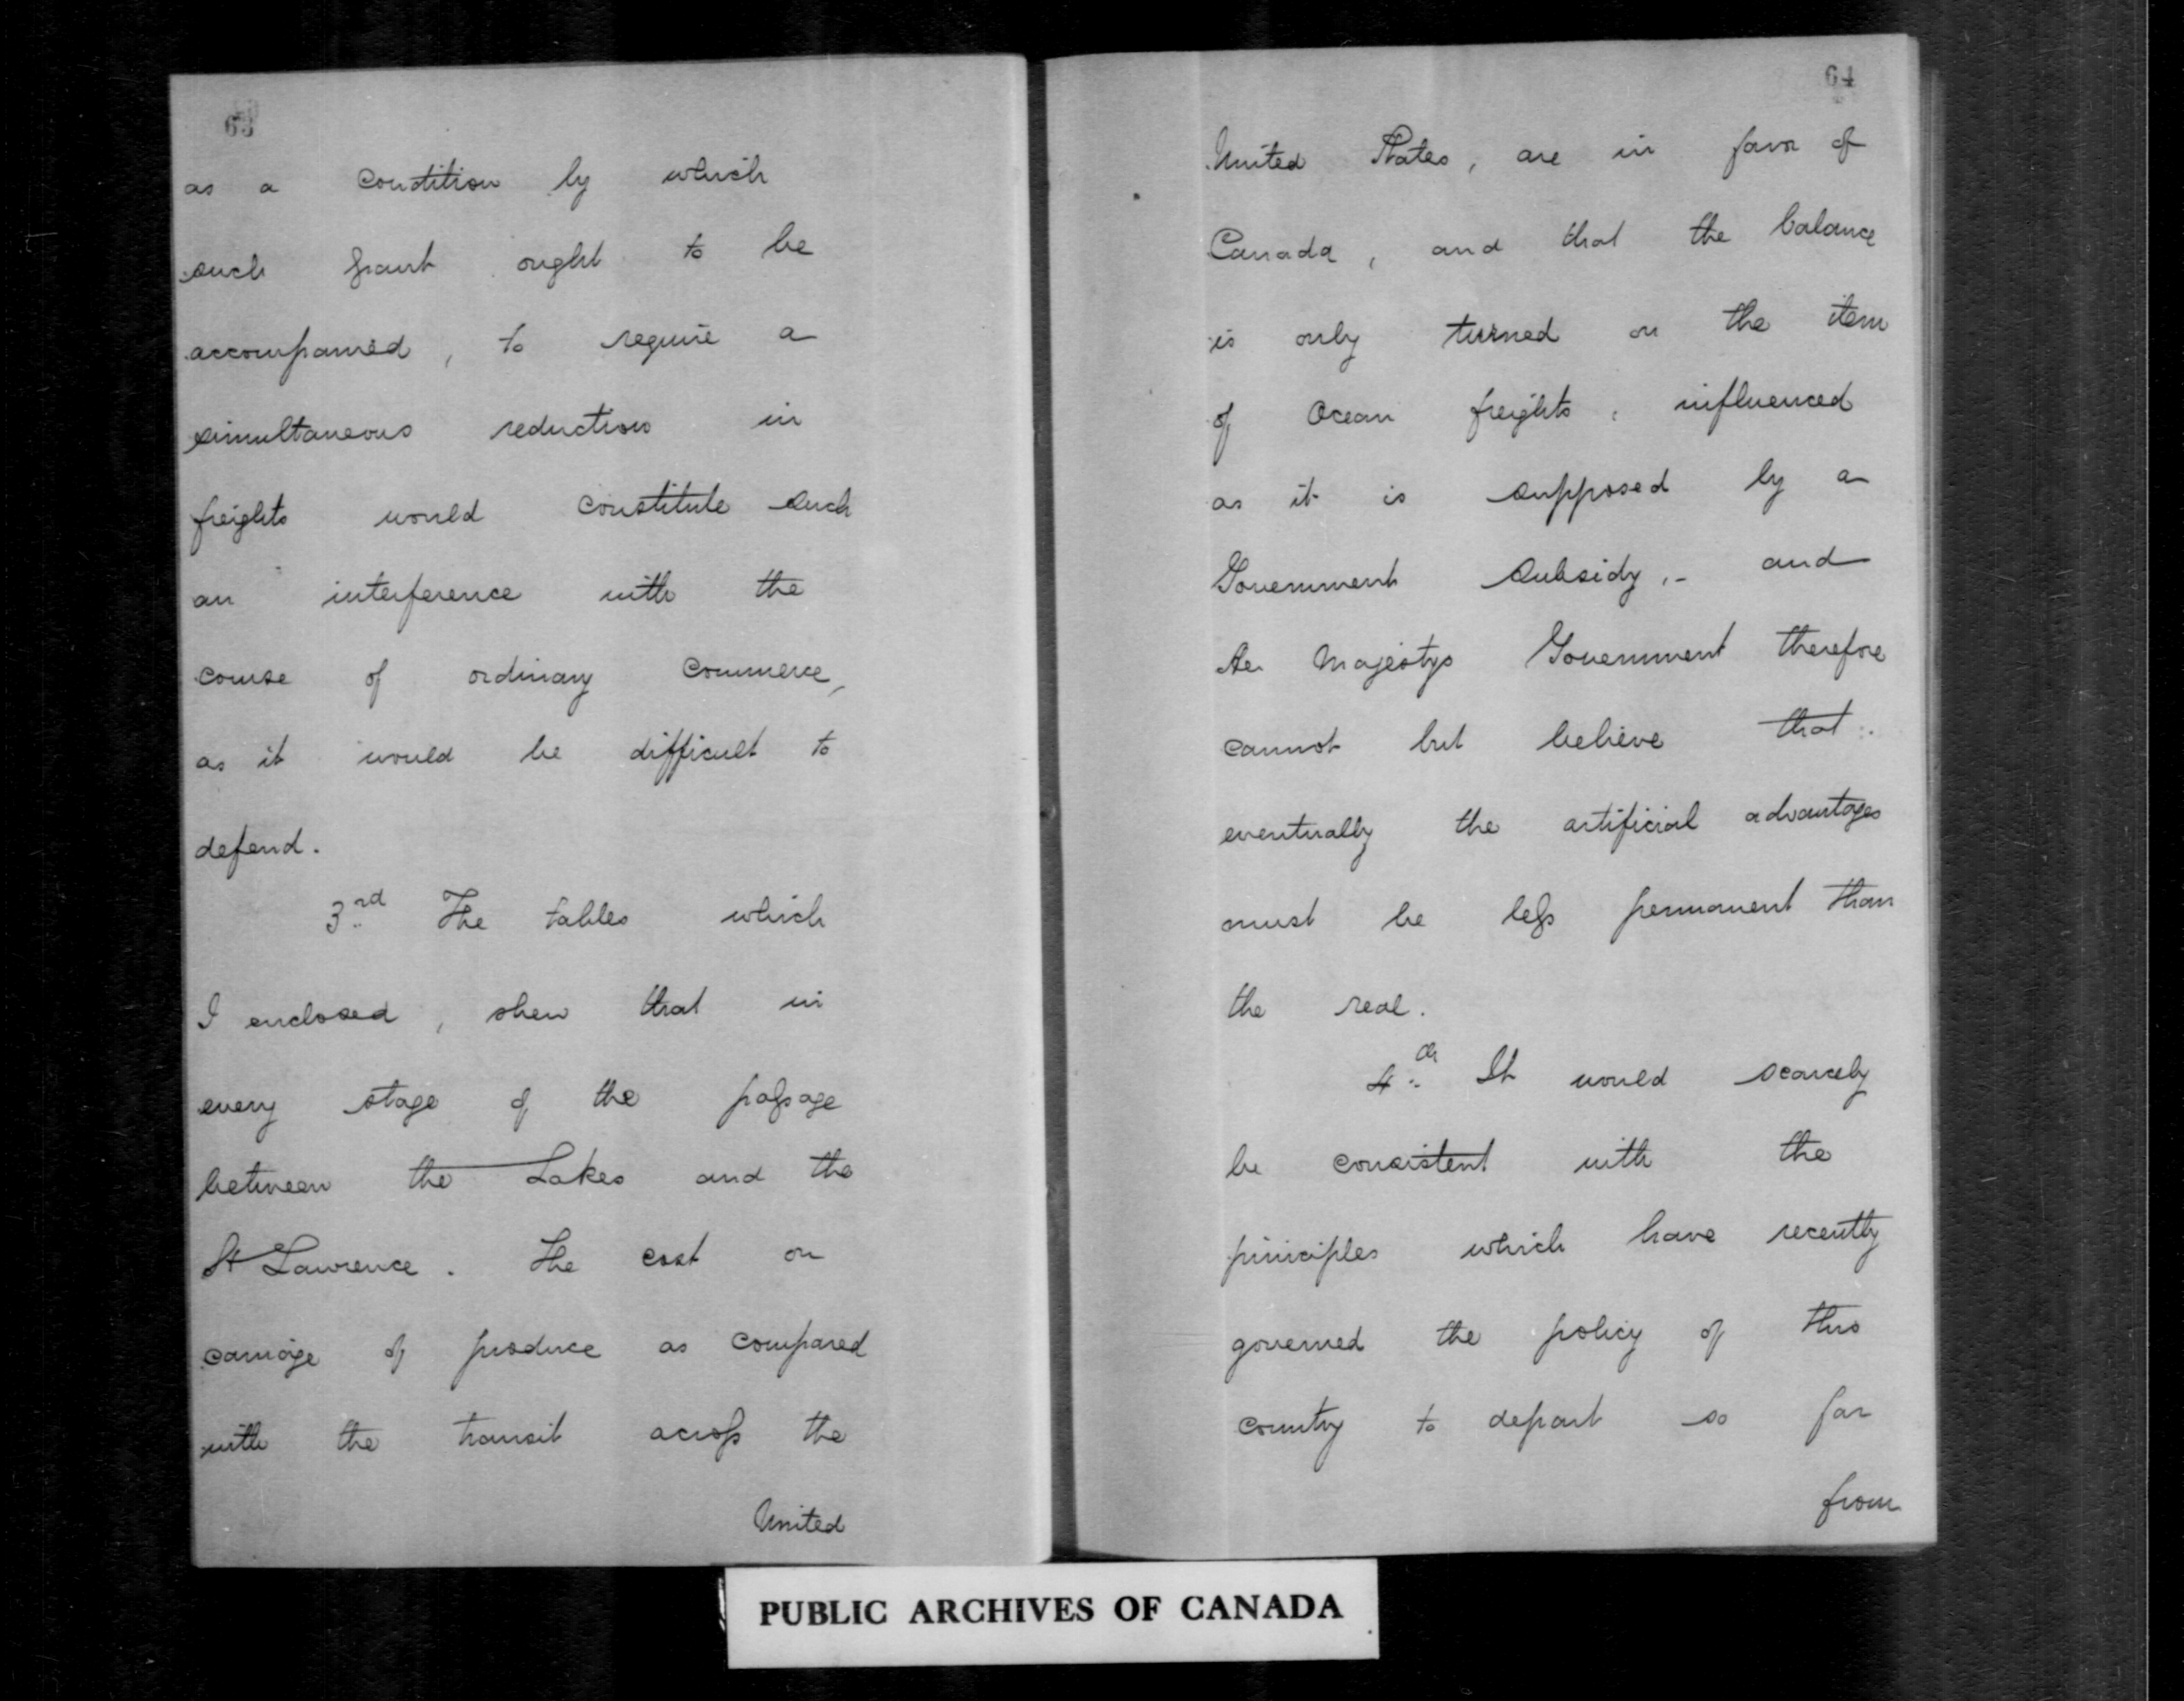 63
as a condition by which
such grant ought to be
accompanied, to require a
simultaneous reduction in
freights would constitute such
an interference with the
course of ordinary commerce,
as it would be difficult to
defend.
3rd The tables which
I enclosed, shew that in
every stage of the passage
between the Lakes and the
St Lawrence. The cost on
carriage of produce as compared
with the transit across the
United
64
United States, are in favor of
Canada, and that the balance
is only turned on the item
of Ocean freights, influenced
as it is supposed by a
Government Subsidy,- and
Her Majestys Government therefore
cannot but believe that
eventually the artificial advantages
must be less permanent than
the real.
4th It would scarcely
be consistent with the
principles which have recently
governed the policy of this
country to depart so far
from
PUBLIC ARCHIVES OF CANADA